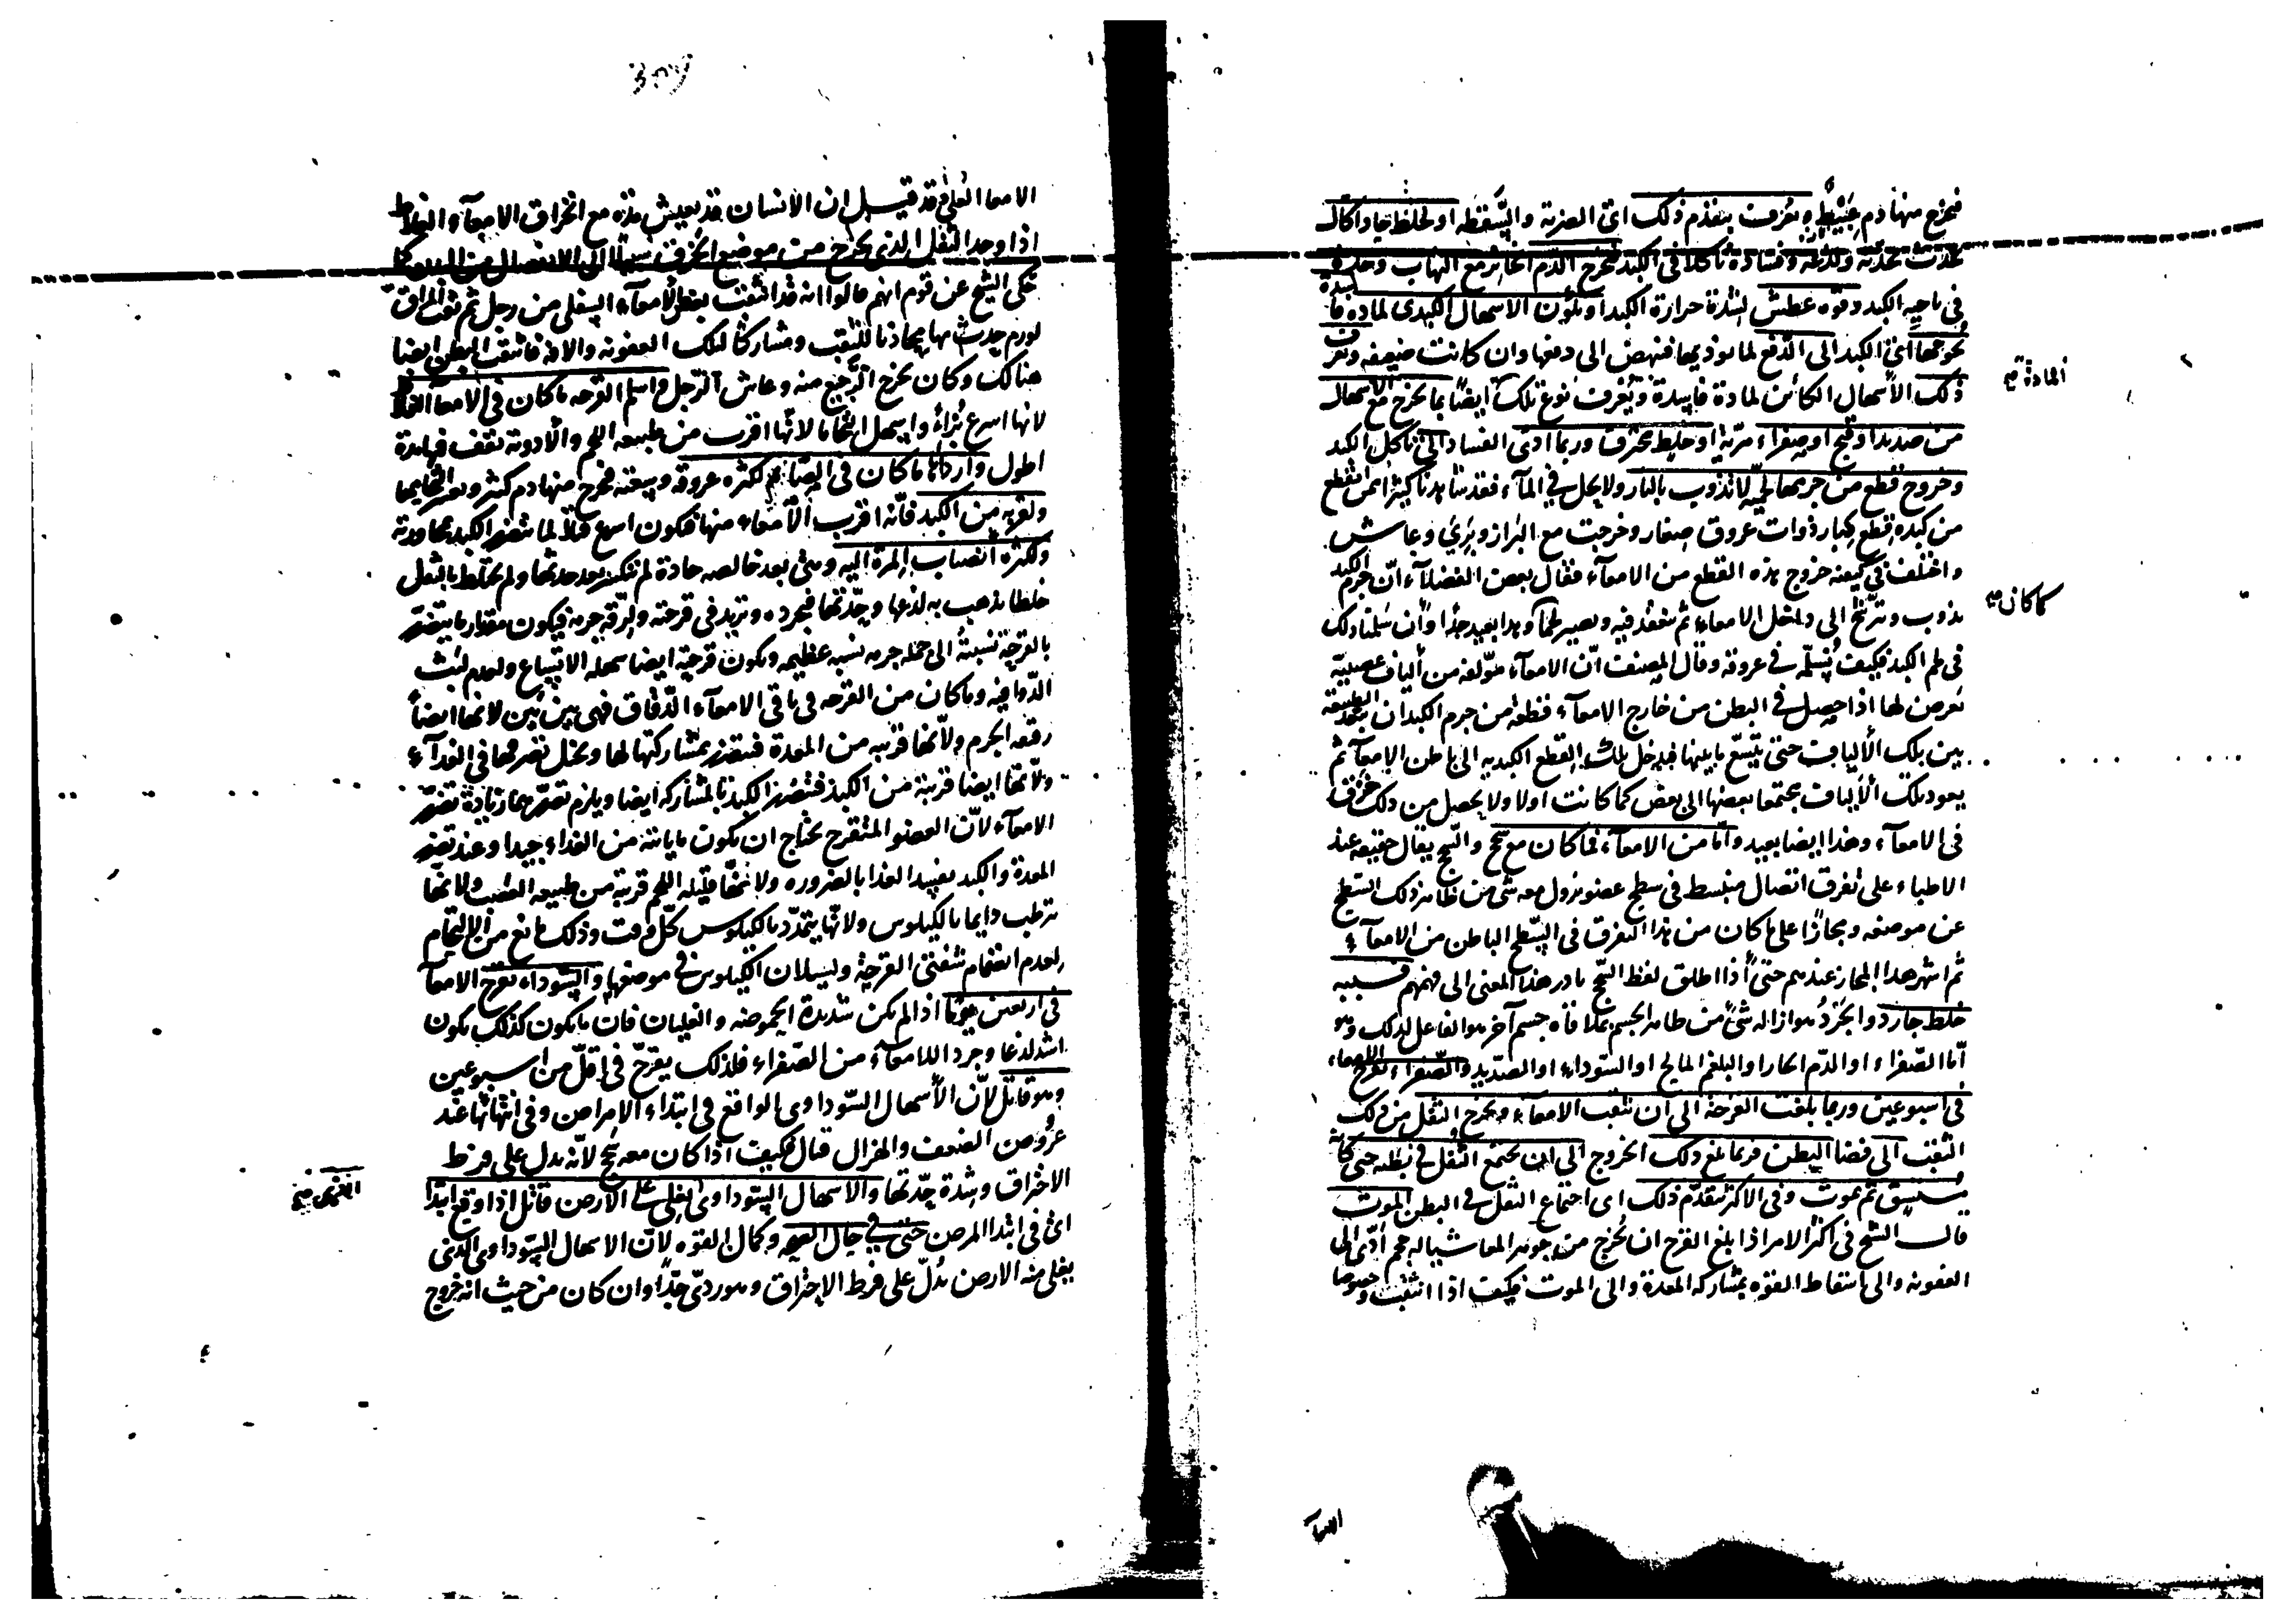 فيخرج منها دم عبيط ويعرف بتقدم ذلك اى الضربة والسقطة او لخلط حاد اكال
يحدث بحدته ولذعه وفساده تاكلا فى الكبد فيخرج الدم الخاثر مع التهاب وحدة شديدة
فى ناحية الكبد وقوة عطش لشدة حرارة الكبد او يكون الاسهال الكبدى لمادة فاسدة
تحوجها اى الكبد الى الدفع لما يوذيها فتنهض الى دفعها وان كانت ضعيفه وتعرف
المادة صح
ذلك الاسهال الكائن لمادة فاسدة ويعرف نوع تلك ايضا بما يخرج مع الاسهال
من صديد او قيح او صفراء مرّية او خليط محترق وربما ادى الفساد الى تاكل الكبد
وخروج قطع من جرمها لحميّة لا تذوب بالنار ولا يحل فى المآء فقد شاهدنا كثيرا ممن انقطع
من كبده قطع كبار ذوات عروق صغار وخرجت مع البراز وبرئ وعاش
واختلف فى كيفية خروج هذه القطع من الامعآء فقال بعض الفضلآء انّ جرم الكبد
كما كان صح
يذوب ويترشح الى داخل الامعاء ثم ينعقد فيه ويصير لحما وهذا بعيد جدا وان سلمنا ذلك
فى لحم الكبد فكيف نسلّمه فى عروقه وقال المصنف انّ الامعآء مؤلفه من ألياف عصبيّة
تعرض لها اذا حصل فى البطن من خارج الامعآء قطعة من جرم الكبد ان تبعد الطبيعة
بين تلك الألياف حتى يتّسع ما بينها فيدخل تلك القطع الكبديه الى باطن الامعآء ثم
يعود تلك الألياف مجتمعا بعضها الى بعض كما كانت اولا ولا يحصل من ذلك خرق
فى الامعآء وهذا ايضا بعيد وامّا من الامعآء فما كان مع سحج والسّحج يقال حقيقه عند
الاطباء على تفرق اتصال منبسط فى سطح عضو يزول معه شئ من ظاهر ذلك السّطح
عن موضعه ومجازا على ما كان من هذا التفرق فى السّطح الباطن من الامعآء
ثم اشتهر هذا المجاز عندهم حتى اذا اطلق لفظ السّحج بادر هذا المعنى الى فهمهم فسببه
خلط جارد والجَرْدُ هو ازالة شئ من ظاهر الجسم بملاقاة جسم آخر هو الفاعل لذلك وهو
امّا الصّفراء او الدّم الحار او البلغم المالح او السّوداء او الصّديد والصّفراء تقرح الامعاء
فى اسبوعين وربما بلغت القرحة الى ان تثقب الامعاء ويخرج الثفل من ذلك
الثقب الى فضا البطن فربما بلغ ذلك الخروج الى ان يجتمع الثفل فى بطنه حتى كأنه
مستسق ثم يموت وفى الاكثر يتقدّم ذلك اى اجتماع الثفل فى البطن الموت
قال الشيخ فى اكثر الامر اذا بلغ القرح ان يخرج من جوهر المعا شيئا له حجم أدّى الى
العفونه والى اسقاط القوه بمشاركة المعدة والى الموت فكيف اذا انثقب وخصوصا
الامعآ
الامعا العليا وقد قيل ان الانسان قد يعيش مدّه مع انخراق الامعآء الغلاظ
اذا وجد الثفل الذى يخرج من موضع الخرق سبيلا الى الانفصال من البدن كما
حكى الشيخ عن قوم انهم قالوا انه قد انثقب بعض الامعآء السفلى من رجل ثم ثقب المراقّ
لورم حدث بها محاذيا للثقب ومشاركا لتلك العفونه والافه فانثقب البطن ايضا
هنالك وكان يخرج الرّجيع منه وعاش الرّجل واسلم القرحه ما كان فى الامعآ الغلاظ
لانها اسرع بُرْءًا واسهل التحاما لانّها اقرب من طبيعة اللحم والادوية تقف فيها مدة
اطول وارداها ما كان فى الصّائم لكثره عروقه وسعته فيخرج منها دم كثير ويعسر التحامها
ولقربه من الكبد فانّه اقرب الأمعاء منها فيكون اسرع قتلا لما تتضرر الكبد بمجاورته
ولكثره انصباب المرة اليه وهى بعد خالصه حادة لم تنكسر بعد حدتها ولم تختلط بالثفل
خلطا يذهب به لذعها وحدّتها فيجرده وتزيد فى قرحته ولرقة جرمه فيكون مقدار ما يتضرر
بالقرحة نسبته الى جملة جرمه نسبه عظيمه ويكون قرحته ايضا سهله الاتساع ولعدم لبث
الدّوا فيه وما كان من القرحه فى باقى الامعآء الدّقاق فهى بين بين لانها ايضا
رقيقه الجرم ولانّها قريبه من المعدة فتتضرر بمشاركتها لها ويختل تصرفها فى الغدآء
ولانّها ايضا قريبة من الكبد فتتضرر الكبد بالمشاركه ايضا ويلزم تضرّرهما زيادة تضرر
الامعآء لانّ العضو المتقرح يحتاج ان يكون ما ياتيه من الغداء جيدا وعند تضرر
المعدة والكبد يفسد الغذا بالضروره ولانها قليلة اللحم قريبة من طبيعة العصب ولانها
ترطب دايما بالكيلوس ولانّها يتمدّد بالكيلوس كلّ وقت وذلك مانع من الالتحام
لعدم انضمام شفتى القرحة ولسيلان الكيلوس فى موضعها والسّوداء تقرح الامعآ
فى اربعين يوما اذا لم يكن شديدة الحموضه والغليان فان ما يكون كذلك يكون
اشد لذعا وجردا للامعآء من الصّفراء فلذلك يقرّح فى اقلّ من اسبوعين
وهو قاتل لانّ الأسهال السّوداوى الواقع فى ابتداء الامراض وفى انتهائها عند
عروض الضعف والهزال قتال فكيف اذا كان معه سحج لانّه يدل على فرط
الاحتراق وشدة حدّتها والاسهال السّوداوى الذى يغلى على الارض قاتل اذا وقع ابتدا
اى فى ابتدا المرض حتى فى حال الصحه وكمال القوه لانّ الاسهال السّوداوى الذى
يغلى منه الارض يدُلّ على فرط الاحتراق وهو ردئ جدّا وان كان من حيث انه خروج